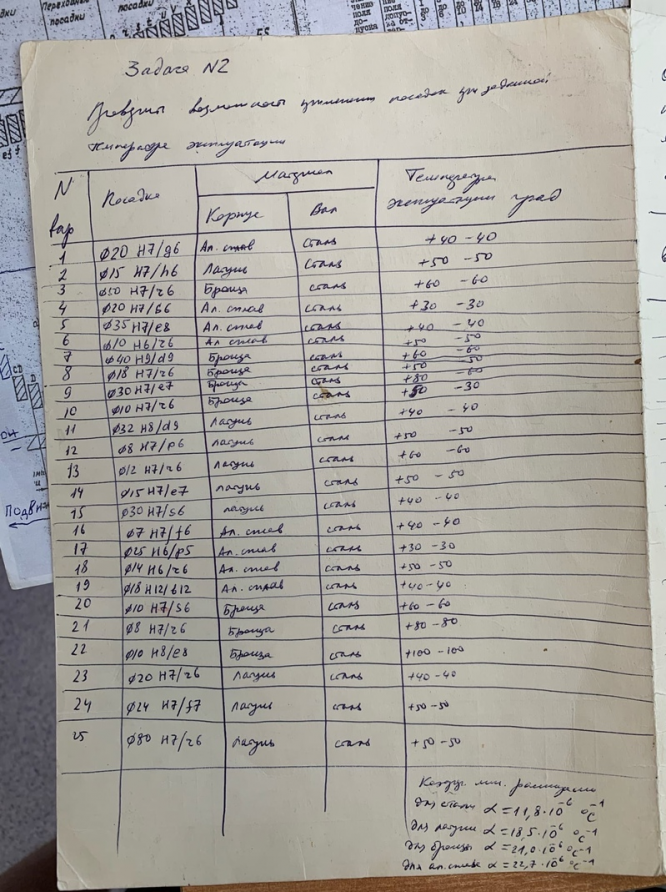 Переходные посадки
посадки
Задача N2
Проверить возможность применения посадок при заданной
температуре эксплуатации
N вар | Посадка | Материал | Температура эксплуатации град
Корпус | Вал
1 ø20 H7/g6 Ал. сплав сталь +40 -40
2 ø15 H7/h6 Латунь сталь +50 -50
3 ø50 H7/r6 Бронза сталь +60 -60
4 ø20 H7/s6 Ал. сплав сталь +30 -30
5 ø35 H7/e8 Ал. сплав сталь +40 -40
6 ø10 H6/r6 Ал сплав сталь +50 -50
7 ø40 H9/d9 Бронза сталь +60 -60
8 ø18 H7/r6 Бронза сталь +50 -50
9 ø30 H7/e7 Бронза сталь +80 -60
10 ø10 H7/r6 Бронза сталь -30
11 ø32 H8/d9 Латунь сталь +40 -40
12 ø8 H7/p6 Латунь сталь +50 -50
13 ø12 H7/r6 Латунь сталь +60 -60
14 ø15 H7/e7 Латунь сталь +50 -50
15 ø30 H7/s6 Латунь сталь +40 -40
16 ø7 H7/f6 Ал. сплав сталь +40 -40
17 ø25 H6/p5 Ал. сплав сталь +30 -30
18 ø14 H6/r6 Ал. сплав сталь +50 -50
19 ø18 H12/b12 Ал. сплав сталь +40 -40
20 ø10 H7/s6 Бронза сталь +60 -60
21 ø8 H7/r6 Бронза сталь +80 -80
22 ø10 H8/e8 Бронза сталь +100 -100
23 ø20 H7/r6 Латунь сталь +40 -40
24 ø24 H7/f7 Латунь сталь +50 -50
25 ø80 H7/r6 Латунь сталь +50 -50
Коэфф лин. расширения
для стали α = 11,8·10⁻⁶ °C⁻¹
для латуни α = 18,5·10⁻⁶ °C⁻¹
для бронзы α = 21,0·10⁻⁶ °C⁻¹
для ал. сплава α = 22,7·10⁻⁶ °C⁻¹